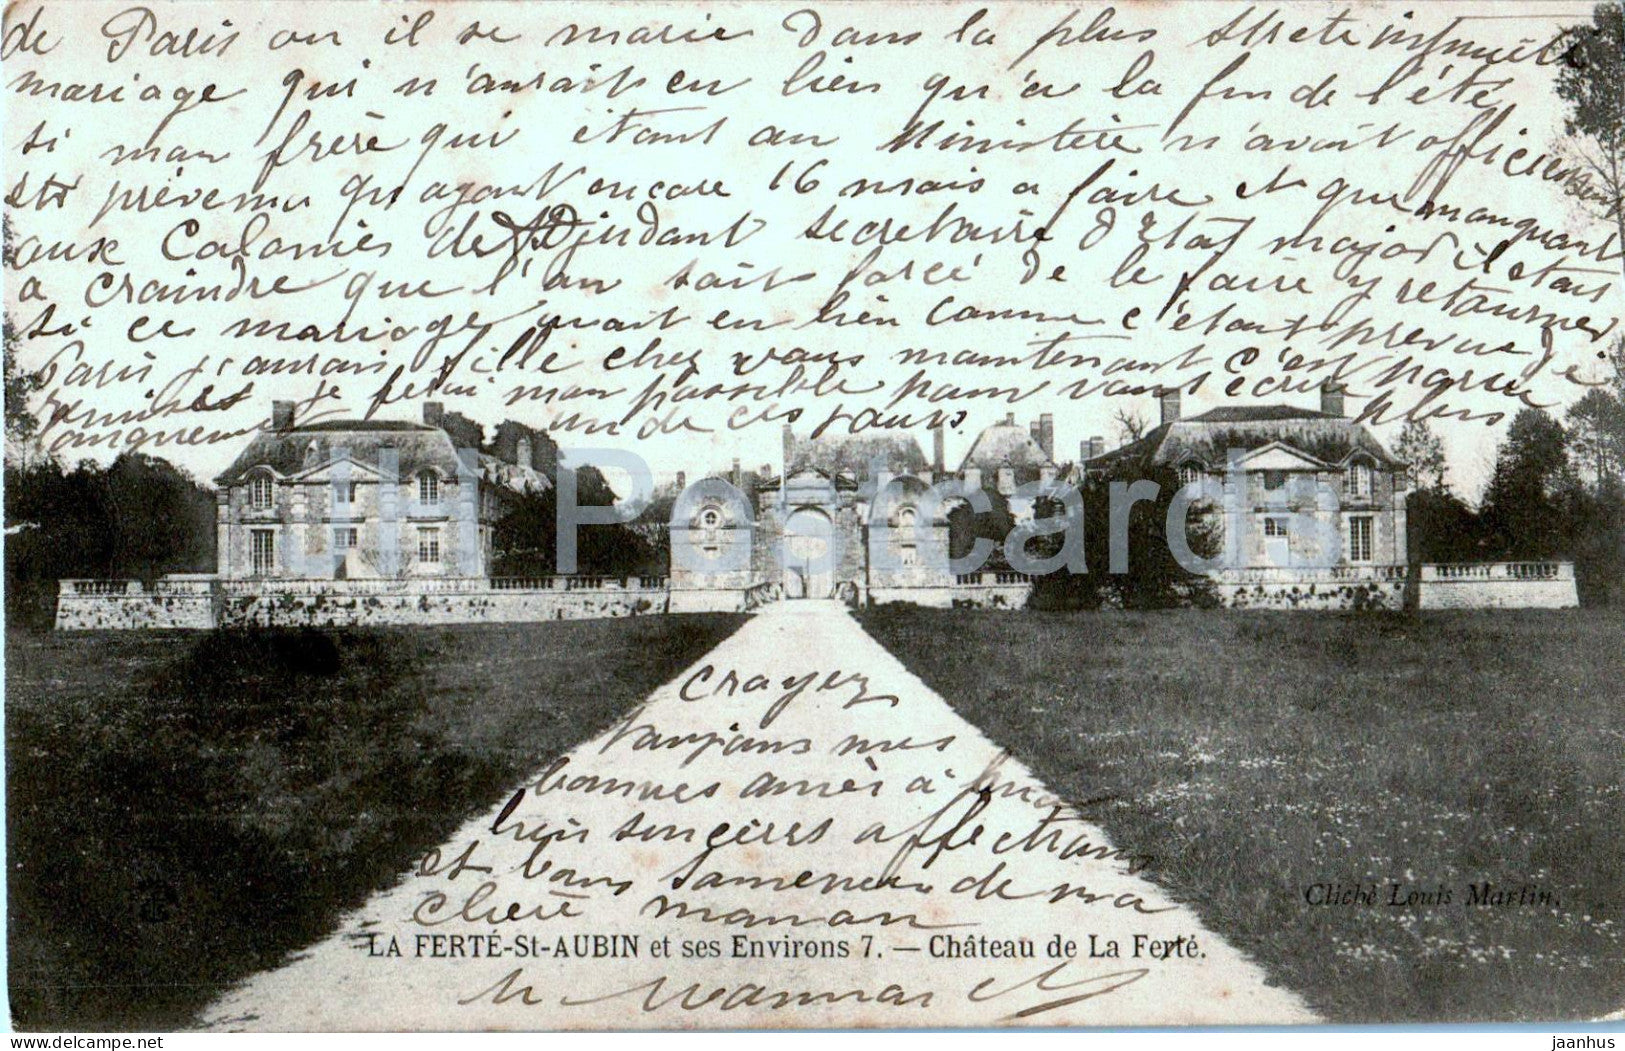 de Paris ou il se marie dans la plus strete intimité
mariage qui n'aurait eu lieu qu'a la fin de l'été
si mon frère qui étant au Ministère n'avait officieusement
été prévenu qu'ayant encore 16 mois a faire et que manquant
aux Colonies de Adjudant secretaire d'Etat major il etait
a craindre que l'on soit forcé de le faire y retourner
si ce mariage avait eu lieu comme c'etait prevue
Paris j'aurais filé chez vous maintenant c'est partie
remise je ferai mon possible pour vous écrire plus
longuement un de ces jours.
Croyez
toujours mes
bonnes amies à
bien sincères affections
et bons de ma
chère maman
LA FERTÉ-St-AUBIN et ses Environs 7. — Château de La Ferté.
Cliché Louis Martin.
Postcards
hippostcard.com
jaanhus